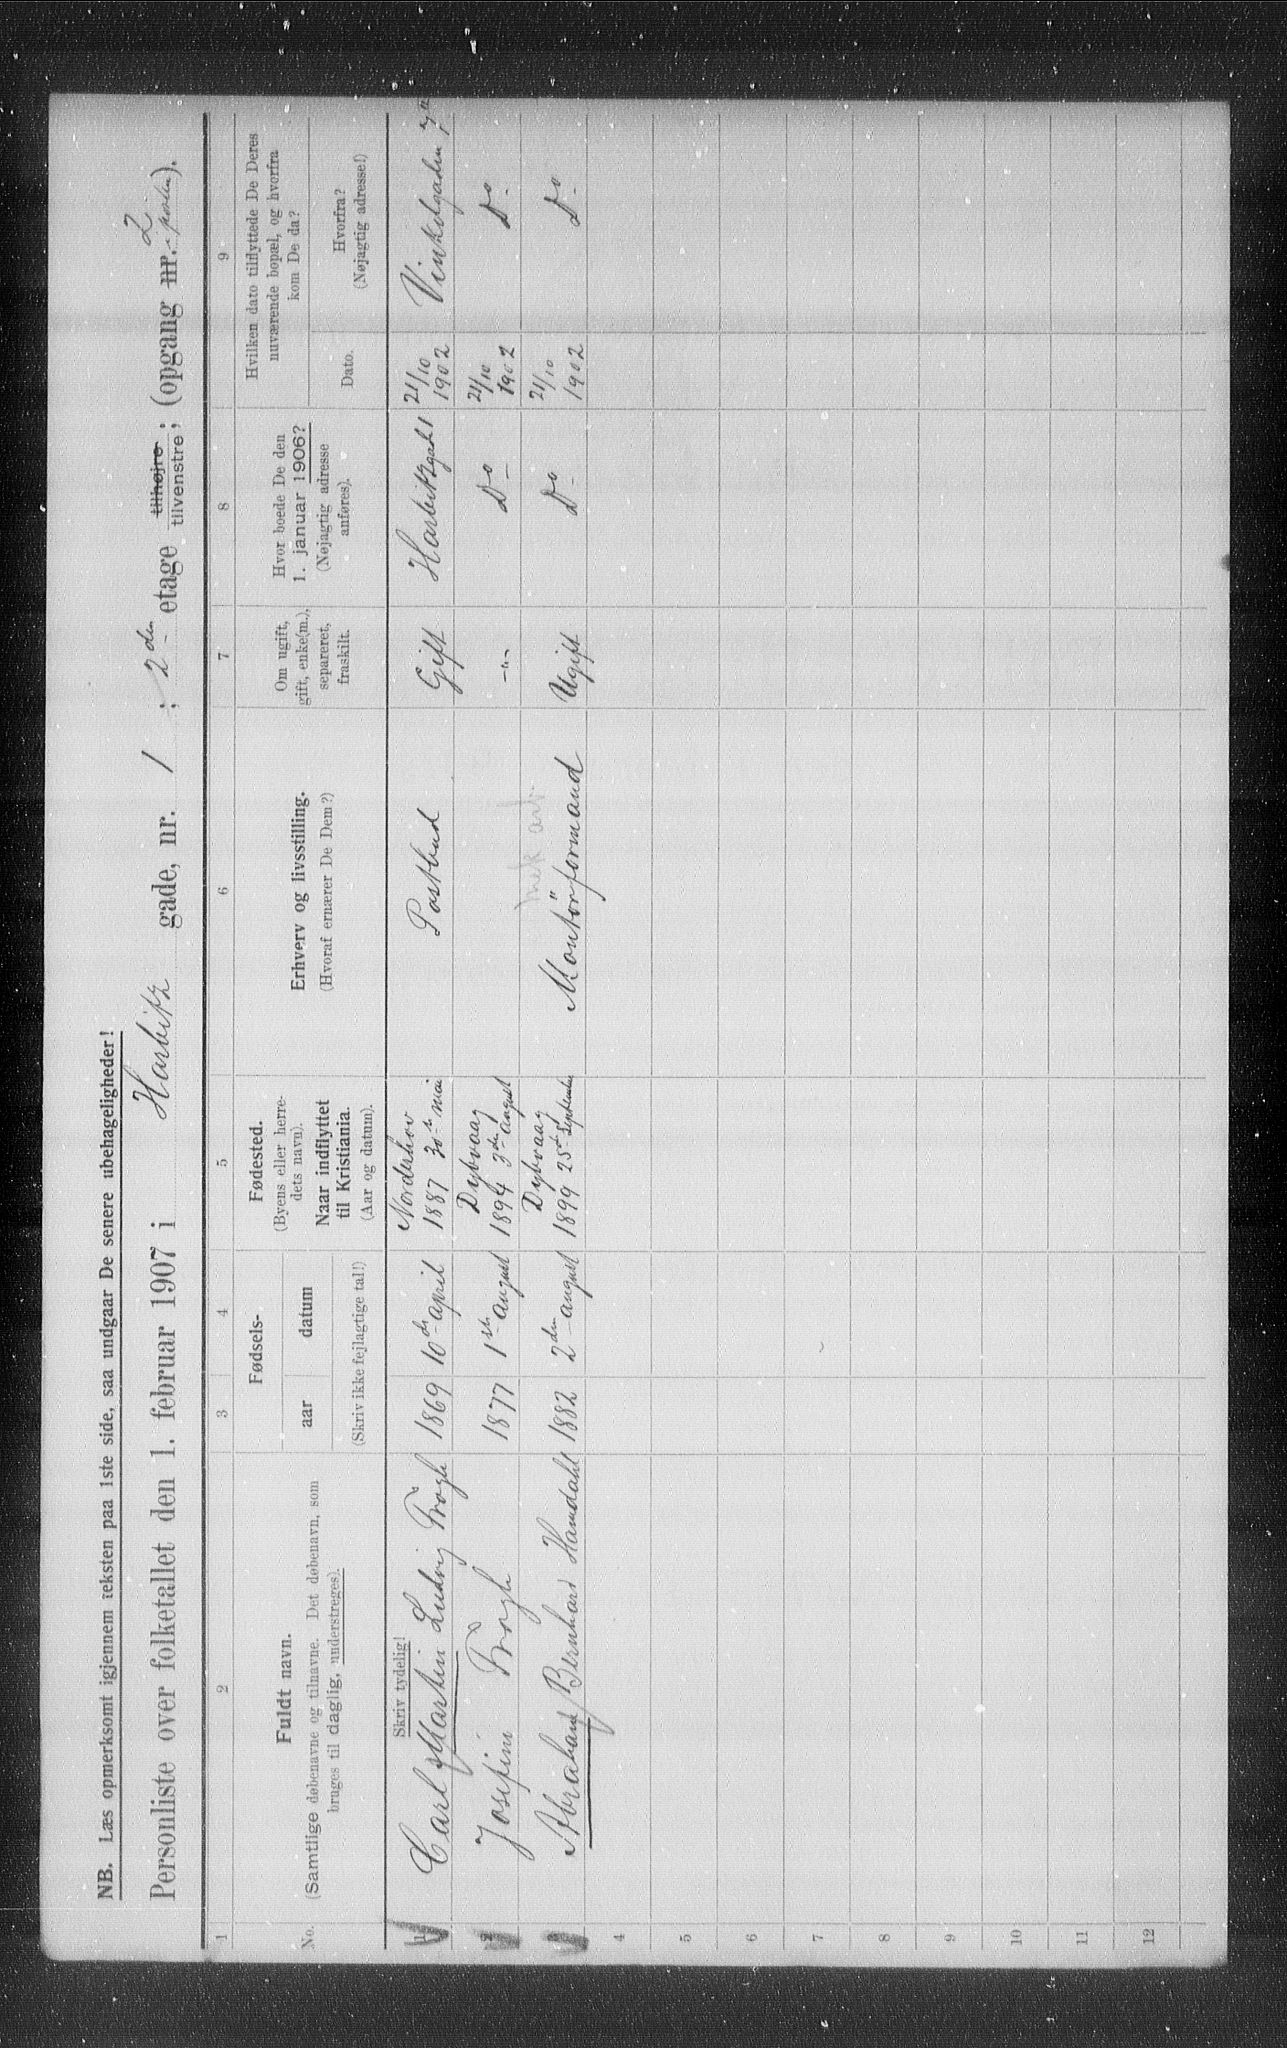 NB. Læs opmerksomt igjennem teksten paa 1ste side, saa undgaar De senere ubehageligheder!
Personliste over folketallet den 1. februar 1907 i Harbitz gade, nr. 1 ; 2den etage tilhøjre tilvenstre; (opgang nr. 2 ).
1 2 3 4 5 6 7 8 9
No.
Fuldt navn.
(Samtlige døbenavne og tilnavne. Det døbenavn, som
bruges til daglig, understreges).
Skriv tydelig!
Fødsels-
aar datum
(Skriv ikke fejlagtige tal!)
Fødested.
(Byens eller herre-
dets navn).
Naar indflyttet
til Kristiania.
(Aar og datum).
Erhverv og livsstilling.
(Hvoraf ernærer De Dem?)
Om ugift,
gift, enke(m.),
separeret,
fraskilt.
Hvor boede De den
1. januar 1906?
(Nøjagtig adresse
anføres).
Hvilken dato tilflyttede De Deres
nuværende bopæl, og hvorfra
kom De da?
Dato.
Hvorfra?
(Nøjagtig adresse!)
1 Carl Martin Ludvig Trogh 1869 10de april Norderhov 1887 30te mai Postbud Gift Harbitzgad 1 21/10 1902 Vinkelgaden 7
2 Josefine Trogh 1877 1ste august Dybvaag 1894 3die august -"- Do - 21/10 1902 Do -
mek arb.
3 Abraham Bernhard Hamdahl 1882 2den august Dybvaag 1899 25de September Montörformand Ugift Do - 21/10 1902 Do -
4
5
6
7
8
9
10
11
12